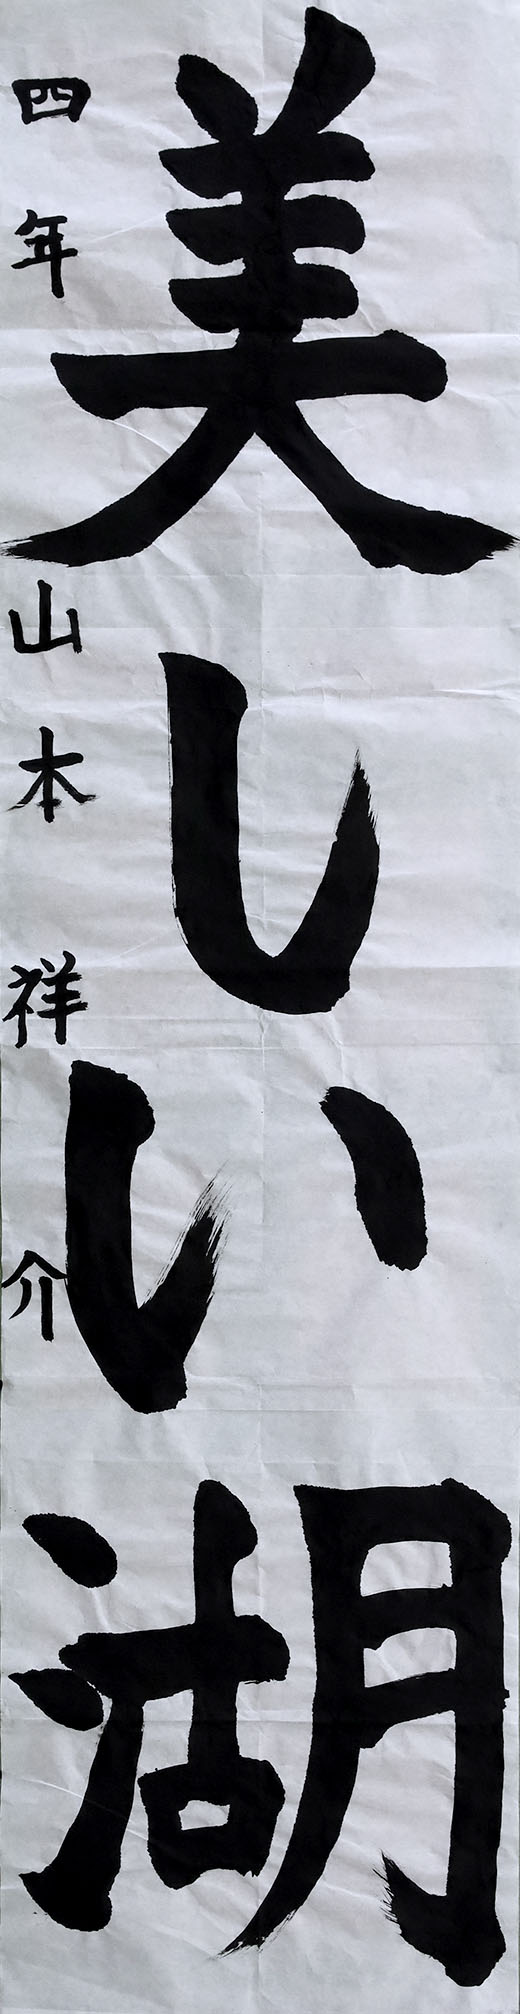 美しい湖
四年 山本祥介